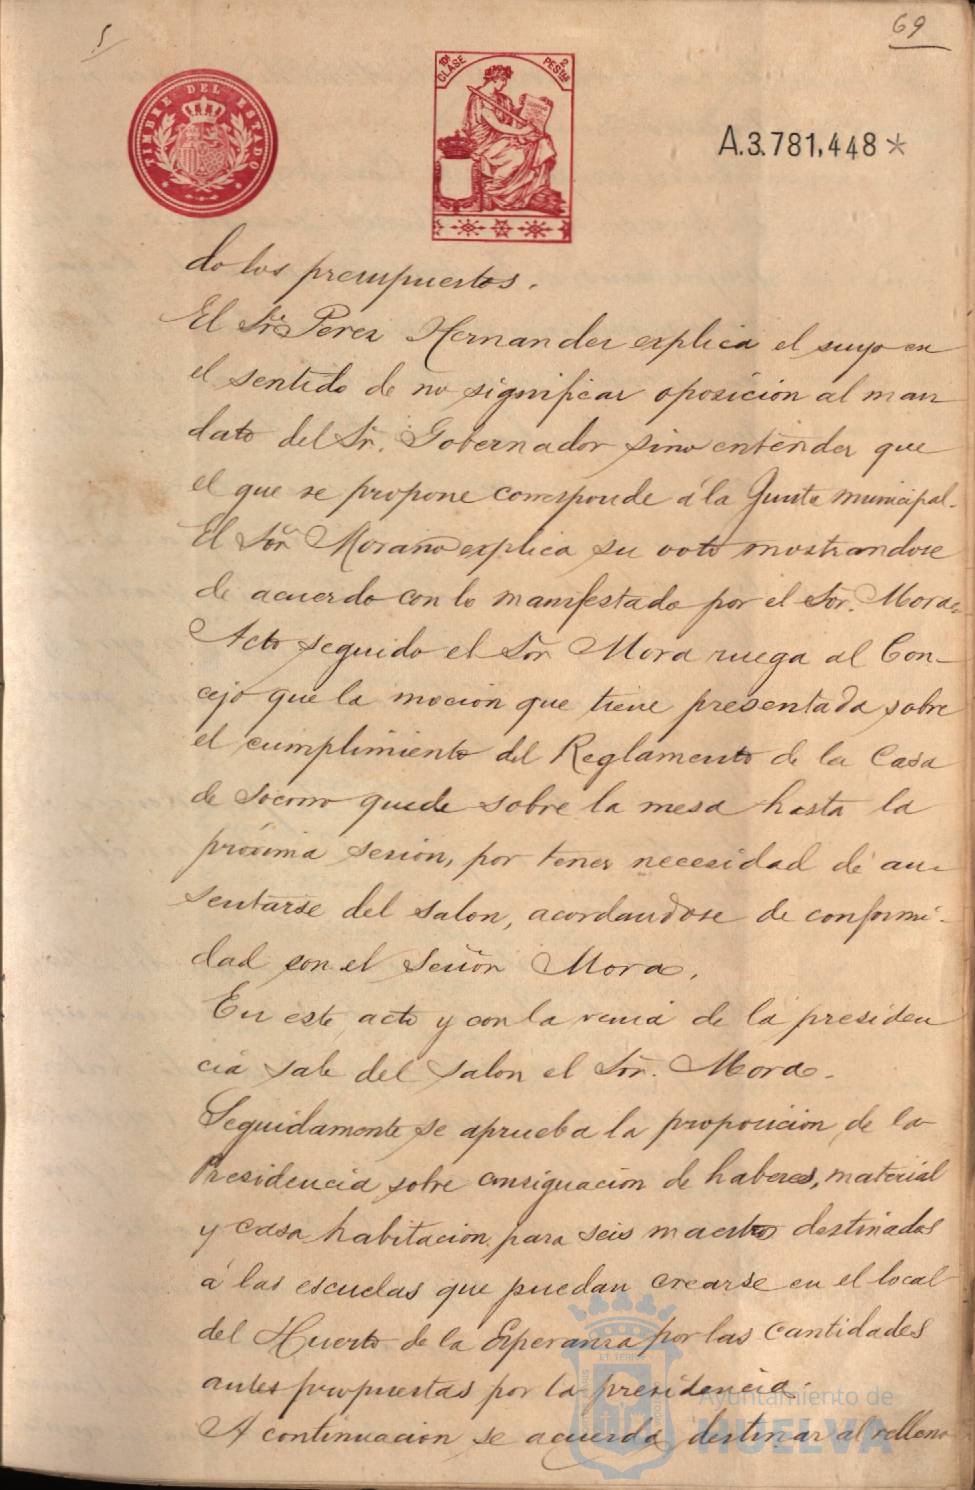 5
69
TIMBRE DEL ESTADO
10ª CLASE
2 PESTAS
A.3.781,448*
do los presupuestos.
El Sr. Perez Hernandez explica el suyo en
el sentido de no significar oposicion al man
dato del Sr. Gobernador sino entender que
el que se propone corresponde á la Junta municipal.
El Sor. Moraño explica su voto mostrandose
de acuerdo con lo manifestado por el Sor. Mora.
Acto seguido el Sor Mora ruega al Con-
cejo que la mocion que tiene presentada sobre
el cumplimiento del Reglamento de la Casa
de Socorro quede sobre la mesa hasta la
próxima sesion, por tener necesidad de au-
sentarse del salon, acordandose de conformi-
dad con el Señor Mora.
En este acto y con la venia de la presiden
cia sale del salon el Sor. Mora.
Seguidamente se aprueba la proposicion de la
Presidencia sobre consignacion de haberes, material
y casa habitacion para seis maestros destinados
á las escuelas que puedan crearse en el local
del Huerto de la Esperanza por las cantidades
antes propuestas por la presidencia.
A continuacion se acuerda destinar al relleno
Ayuntamiento de
HUELVA